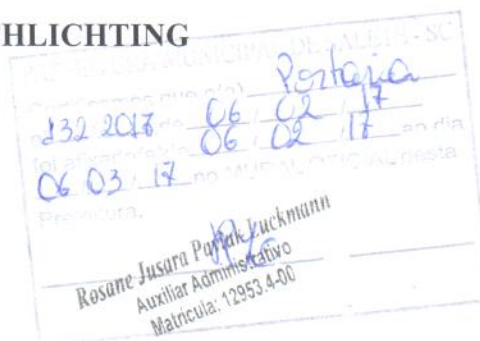 HLICHTING
PREFEITURA MUNICIPAL DE SALETE - SC
Certificamos que o(a) Portaria
132 2017 de 06 02 17
foi afixado(a) de 06 / 02 / 17 ao dia
06 03 17 no MURAL OFICIAL desta
Prefeitura.
Rosane Jusara Luckmann
Auxiliar Administrativo
Matrícula: 12953.4-00